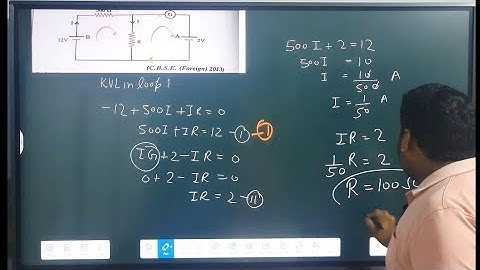 500 Ω
G
I
I
12V
B
R
A
2V
(C.B.S.E. (Foreign) 2013)
KVL in loop 1
-12+500I+IR=0
500I+IR=12-①-①
IG+2-IR=0
0+2-IR=0
IR=2-⑪
500I+2=12
500I=10
I=10/500 A
I=1/50 A
IR=2
1/50 R=2
R=100